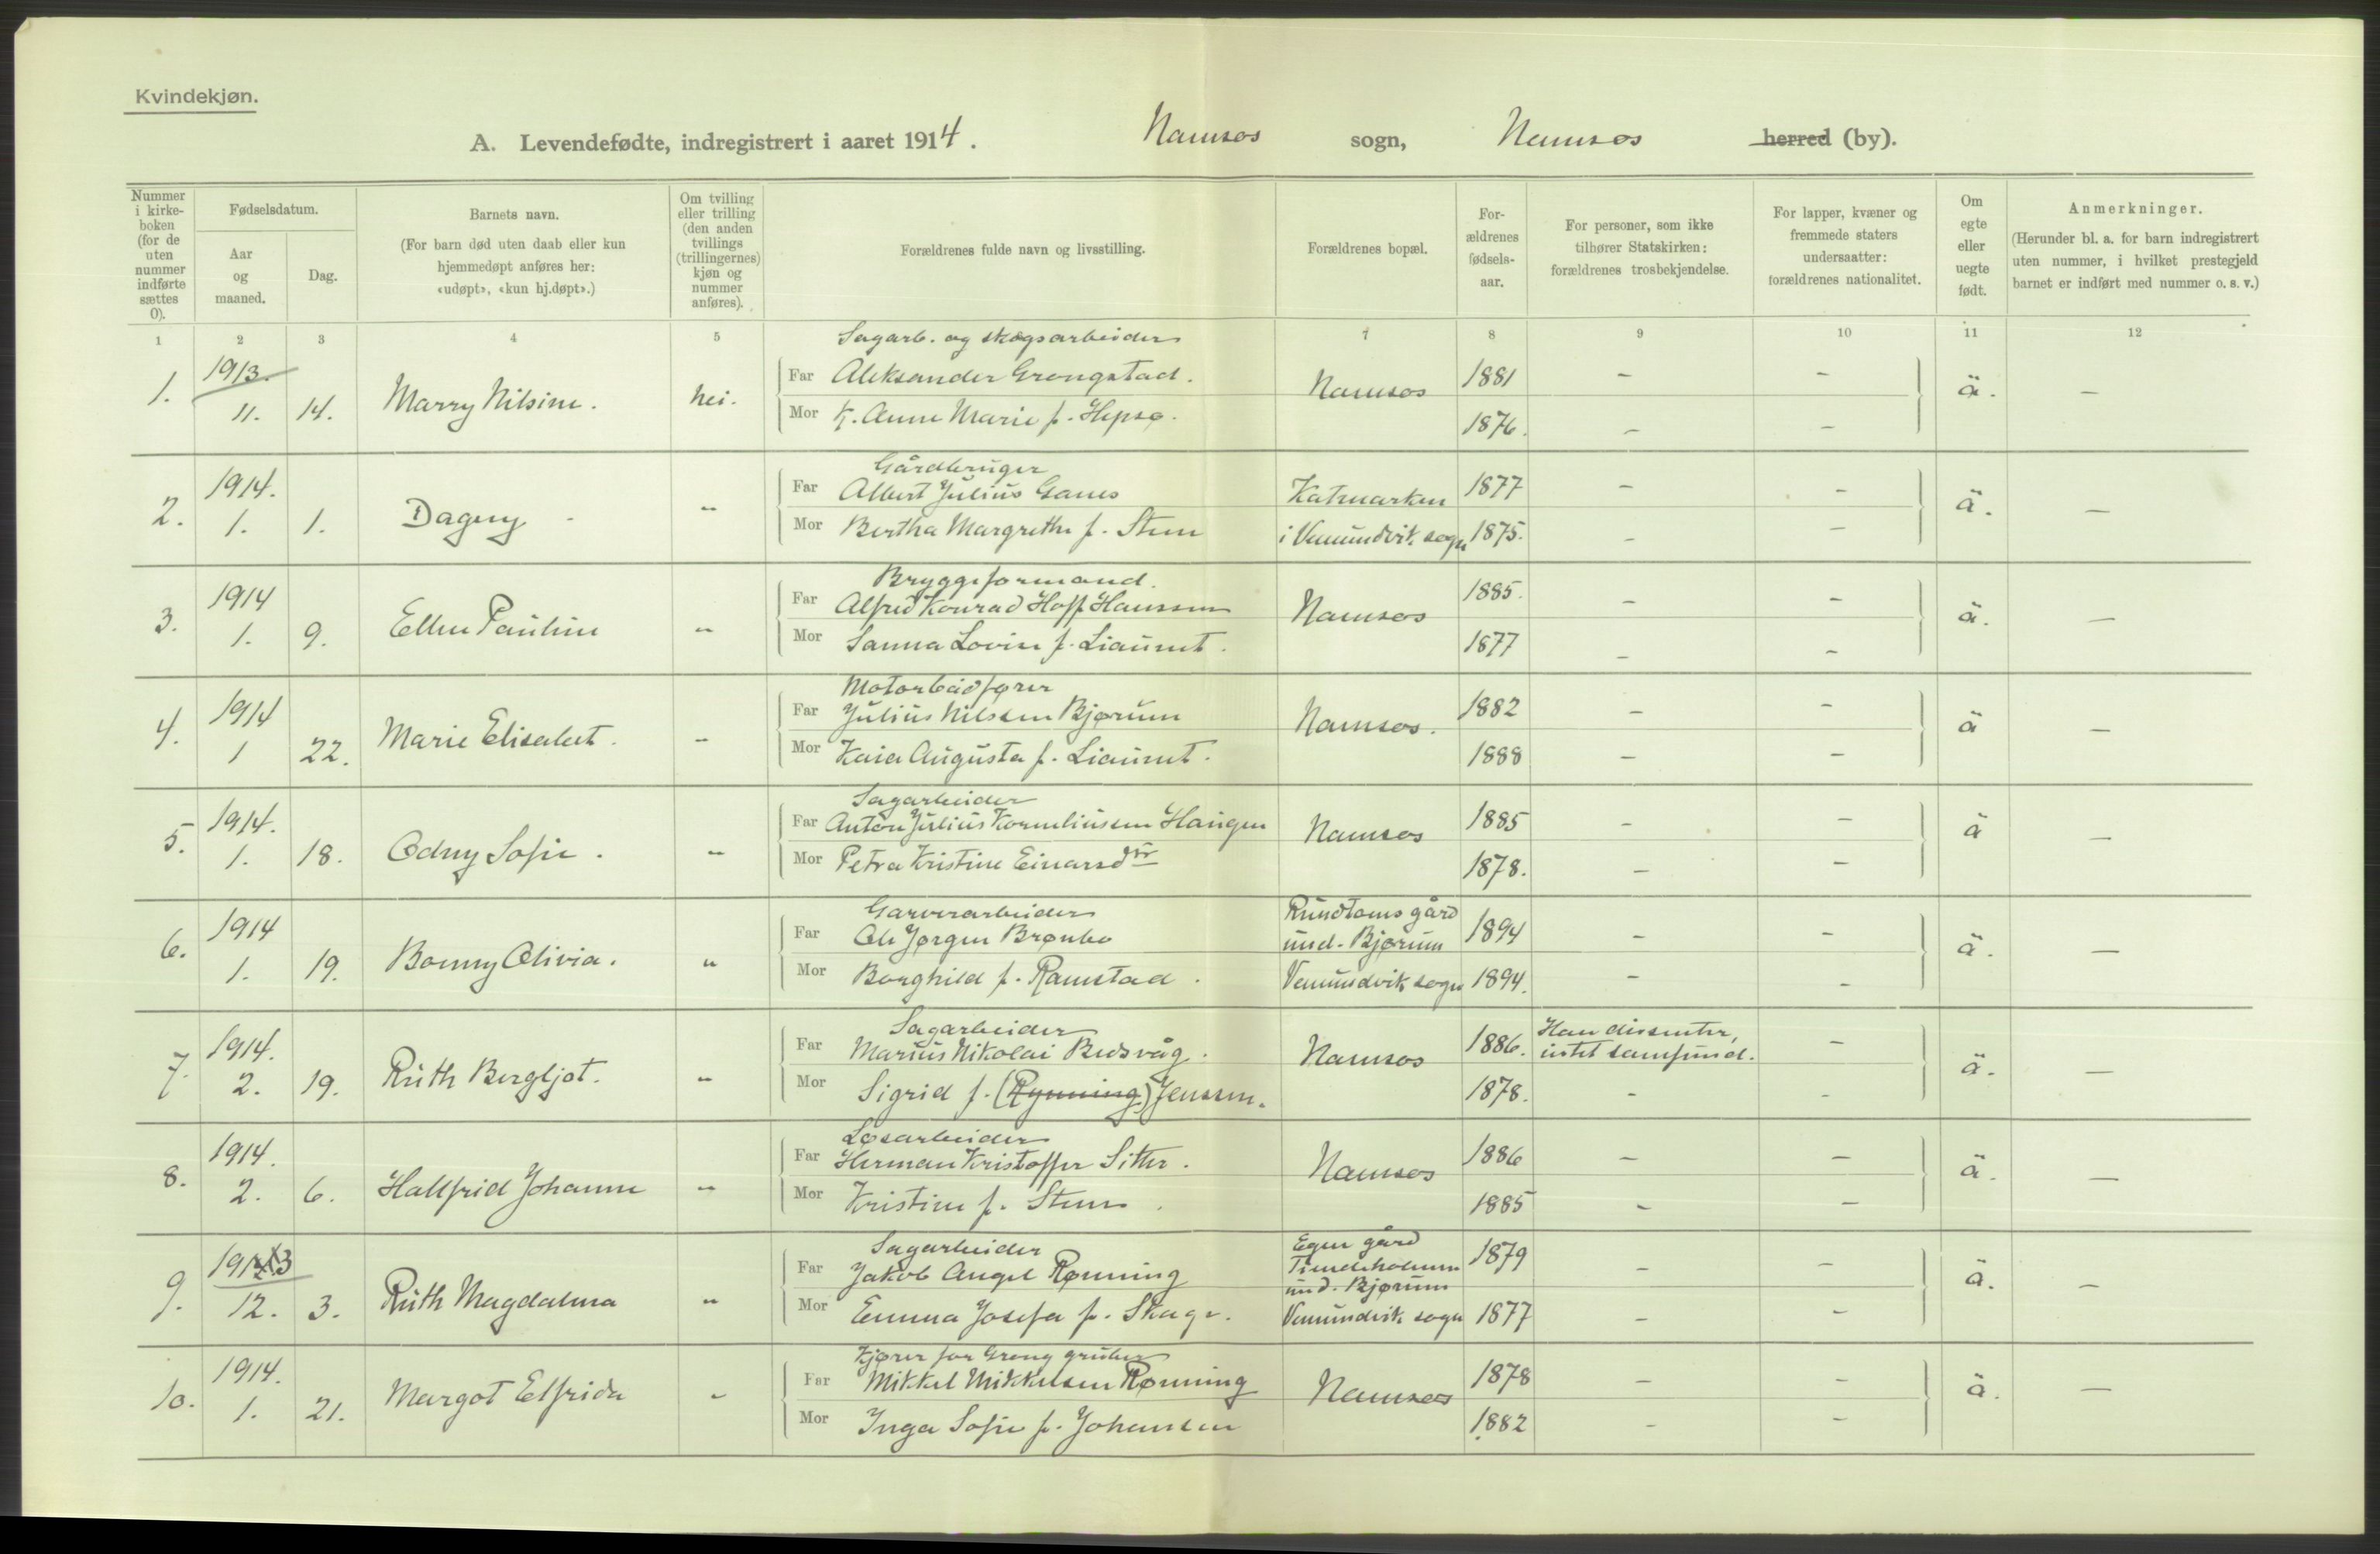 Kvindekjøn.
A. Levendefødte, indregistrert i aaret 1914. Namsos sogn, Namsos herred (by).
Nummer i kirke-boken (for de uten nummer indførte sættes 0).
Fødselsdatum.
Aar og maaned.
Dag.
Barnets navn.
(For barn død uten daab eller kun hjemmedøpt anføres her: «udøpt», «kun hj.døpt».)
Om tvilling eller trilling (den anden tvillings (trillingernes) kjøn og nummer anføres).
Forældrenes fulde navn og livsstilling.
Forældrenes bopæl.
For-ældrenes fødsels-aar.
For personer, som ikke tilhører Statskirken: forældrenes trosbekjendelse.
For lapper, kvæner og fremmede staters undersaatter: forældrenes nationalitet.
Om egte eller uegte født.
Anmerkninger.
(Herunder bl. a. for barn indregistrert uten nummer, i hvilket prestegjeld barnet er indført med nummer o. s. v.)
1 2 3 4 5 7 8 9 10 11 12
Sagarb. og skogsarbeider
1. 1913. 11. 14. Marry Nilsine. nei. Far Aleksander Grongstad. Namsos 1881 – – ä. –
Mor K. Anne Marie f. Hepsø. 1876. – –
Gårdbruger
2. 1914. 1. 1. Dagny " Far Albert Julius Ganes Katmarken 1877 – – ä. –
Mor Bertha Margrethe f. Stene i Vemundvik sogn 1875. – –
Bryggeformand.
3. 1914 1. 9. Ellen Pauline " Far Alfred Konrad Hoff Hanssen Namsos 1885. – – ä. –
Mor Sanna Lovise f. Liaunet. 1877 – –
Motorbådfører
4. 1914 1 22. Marie Elisabet. " Far Julius Nilssen Bjørum Namsos. 1882 – – ä –
Mor Kaia Augusta f. Liaunet. 1888 – –
Sagarbeider
5. 1914. 1. 18. Odny Sofie. " Far Anton Julius Korneliussen Haugen Namsos 1885 – – ä –
Mor Petra Kristine Einarsdtr 1878. – –
Garverarbeider
6. 1914 1. 19. Bonny Olivia. " Far Ole Jørgen Brønbo Rundtoms gård und. Bjørum 1894 – – ä. –
Mor Borghild f. Ramstad. Vemundvik sogn 1894. – –
Sagarbeider
7. 1914. 2. 19. Ruth Bergljot. " Far Marius Nikolai Budsvåg. Namsos 1886. Han dissenter, intet samfund. – ä. –
Mor Sigrid f. (Rynning) Jenssen. 1878. – –
Løsarbeider
8. 1914. 2. 6. Hallfrid Johanne " Far Herman Kristoffer Sitter. Namsos 1886 – – ä. –
Mor Kristine f. Stene. 1885 – –
Sagarbeider
9. 1913 12. 3. Ruth Magdalena " Far Jakob Angel Rønning Egen gård und. Bjørum 1879 – – ä. –
Mor Emma Josefa f. Skage. Vemundvik sogn 1877 – –
Kjører for Grong gruber
10. 1914. 1. 21. Margot Elfrida " Far Mikkel Mikkelsen Rønning Namsos 1878 – – ä. –
Mor Inga Sofie f. Johansen 1882 – –